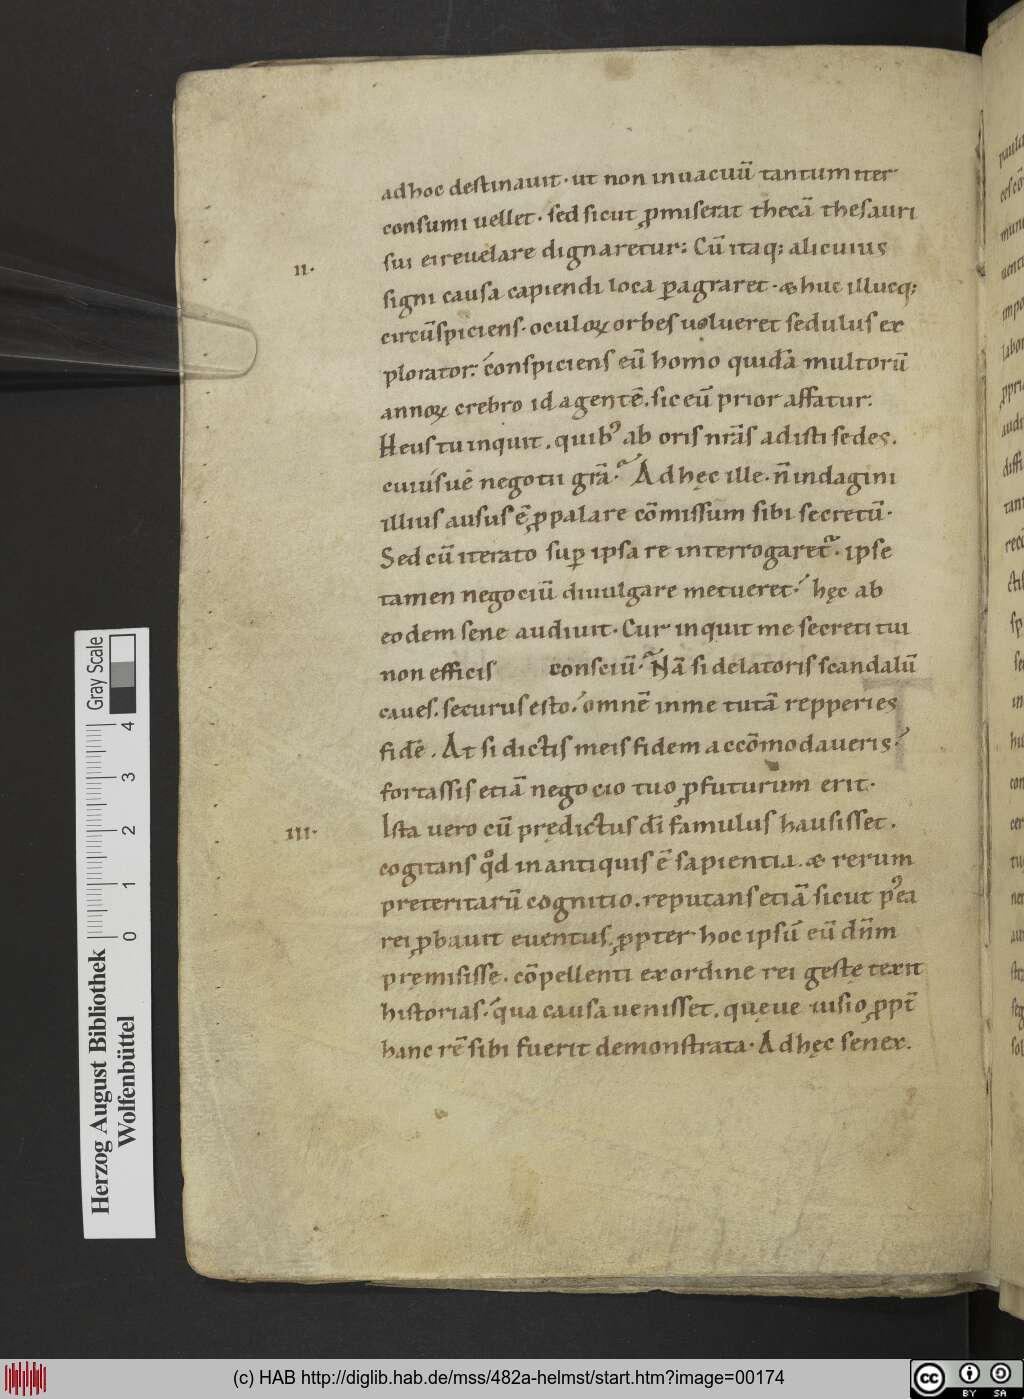 adhoc destinauit · ut non inuacuū tantum iter
consumi uellet · sed sicut ꝓmiserat thecā thesauri
sui ei reuelare dignaretur; Cū itaq; alicuius
II·
signi causa capiendi loca ꝑagraret · æ huc illucq;
circūspiciens · oculoꝝ orbes uolueret sedulus ex
plorator; conspiciens eū homo quidā multorū
annoꝝ crebro id agentē, sic eū prior affatur:
Heus tu inquit, quibꝰ ab oris nr̄is adisti sedes,
cuiusuē negotii grā · Ad hęc ille · n̄ indagini
illius ausus ē ꝓpalare cōmissum sibi secretū ·
Sed cū iterato suꝑ ipsa re interrogaret · ipse
tamen negociū diuulgare metueret · hęc ab
eodem sene audiuit · Cur inquit me secreti tui
non efficis consciū · Nā si delatoris scandalū
caues, securus esto · omnē in me tutā repperies
fidē · At si dictis meis fidem accōmodaueris ·
fortassis etiā negocio tuo ꝓfuturum erit ·
III·
Ista uero cū prędictus dī famulus hausisset ·
cogitans qd̄ in antiquis ē sapientia, æ rerum
preteritarū cognitio, reputans etiā sicut pꝰea
rei ꝓbauit euentus, ꝓpter hoc ipsū eū dn̄m
pręmisisse, cōpellenti ex ordine rei gestę texit
historias · qua causa uenisset, quęue uisio ꝓpt̄
hanc rē sibi fuerit demonstrata · Ad hęc senex.
Gray Scale
4
3
2
1
0
Herzog August Bibliothek
Wolfenbüttel
(c) HAB http://diglib.hab.de/mss/482a-helmst/start.htm?image=00174
cc BY SA